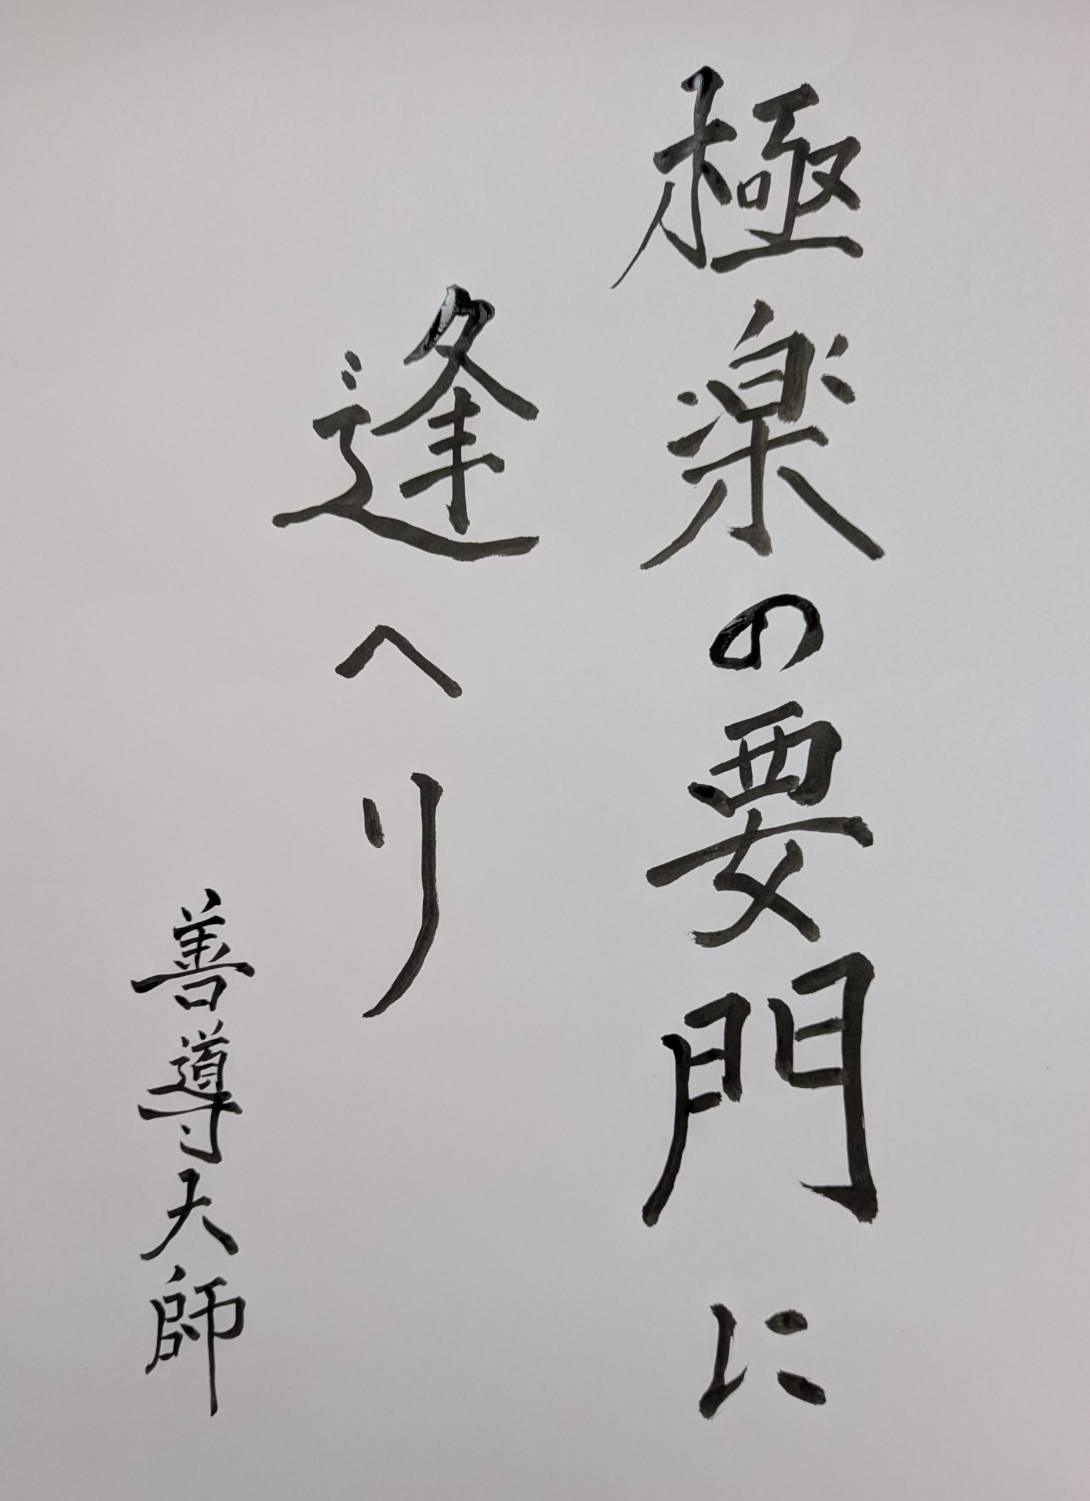 極楽の要門に
逢へり
善導大師